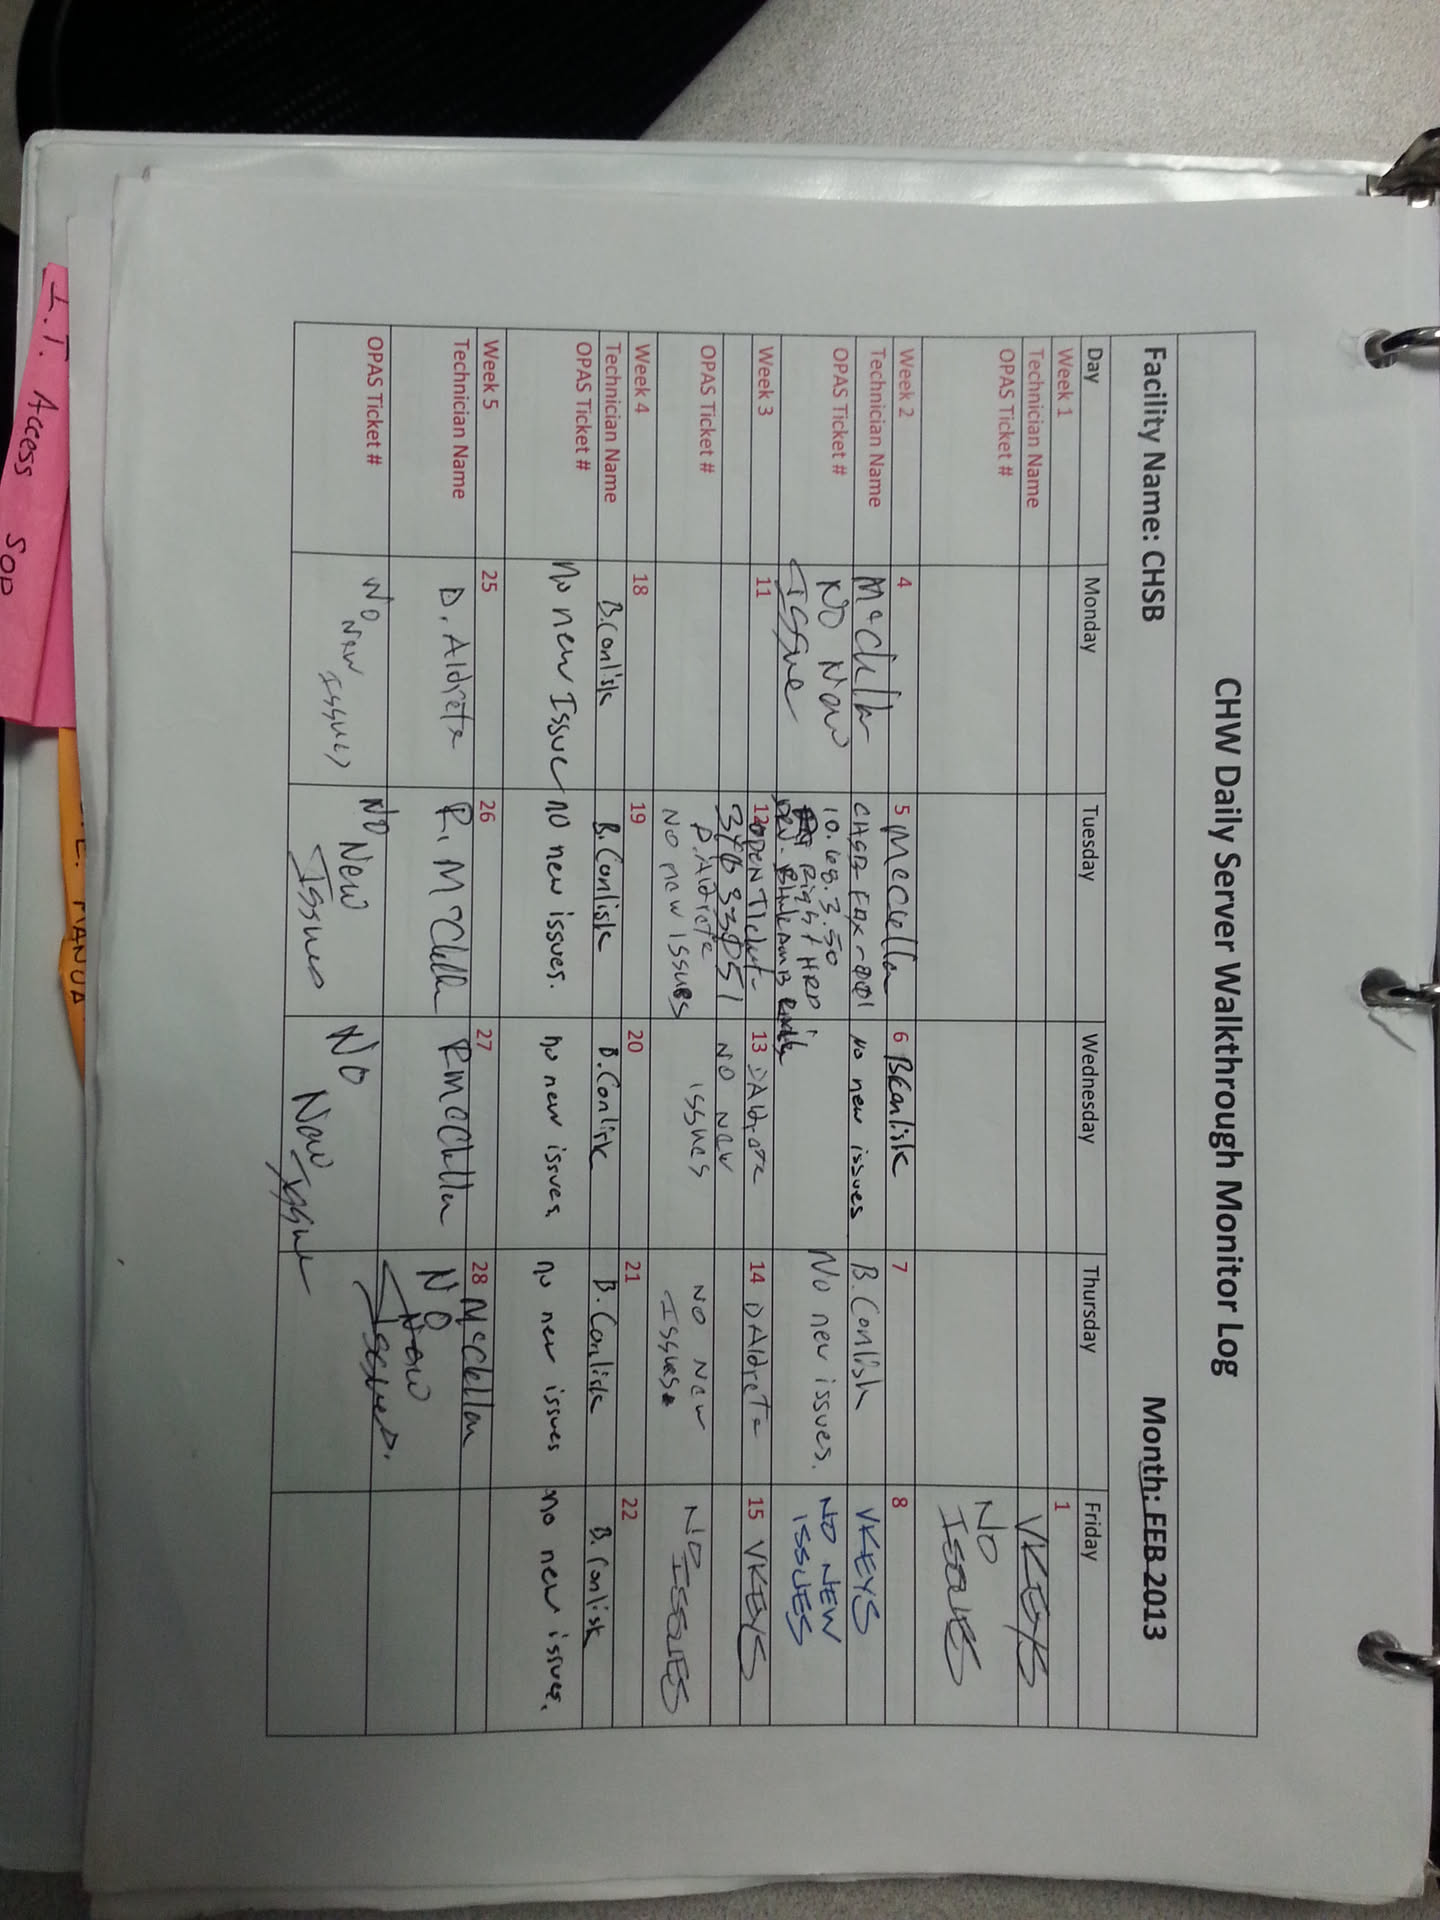 CHW Daily Server Walkthrough Monitor Log
Facility Name: CHSB Month: FEB 2013
Day Monday Tuesday Wednesday Thursday Friday
Week 1 1
Technician Name VKEYS
OPAS Ticket # NO
ISSUES
Week 2 4 5 McClellan 6 BConlisk 7 8
Technician Name McClelln CHSB-FAX-001 No new issues B. Conlisk VKEYS
OPAS Ticket # NO New 10.68.3.50 No new issues. NO NEW
Issue Right HRD ISSUES
Week 3 11 12 OPEN Ticket 13 DAldrete 14 DAldrete 15 VKEYS
34633051 NO New
OPAS Ticket # D.Aldrete issues NO New NO
NO new issues Issues ISSUES
Week 4 18 19 20 21 22
Technician Name B.Conlisk B.Conlisk B.Conlisk B.Conlisk B.Conlisk
OPAS Ticket # No new Issue no new issues. no new issues. no new issues no new issues.
Week 5 25 26 27 28 McClellan
Technician Name D. Aldrete R. McClelln RMcClellan NO
New
OPAS Ticket # No New Issues NO New Issues No New Issue Issues.
I.T. Access
SOP
MANUA